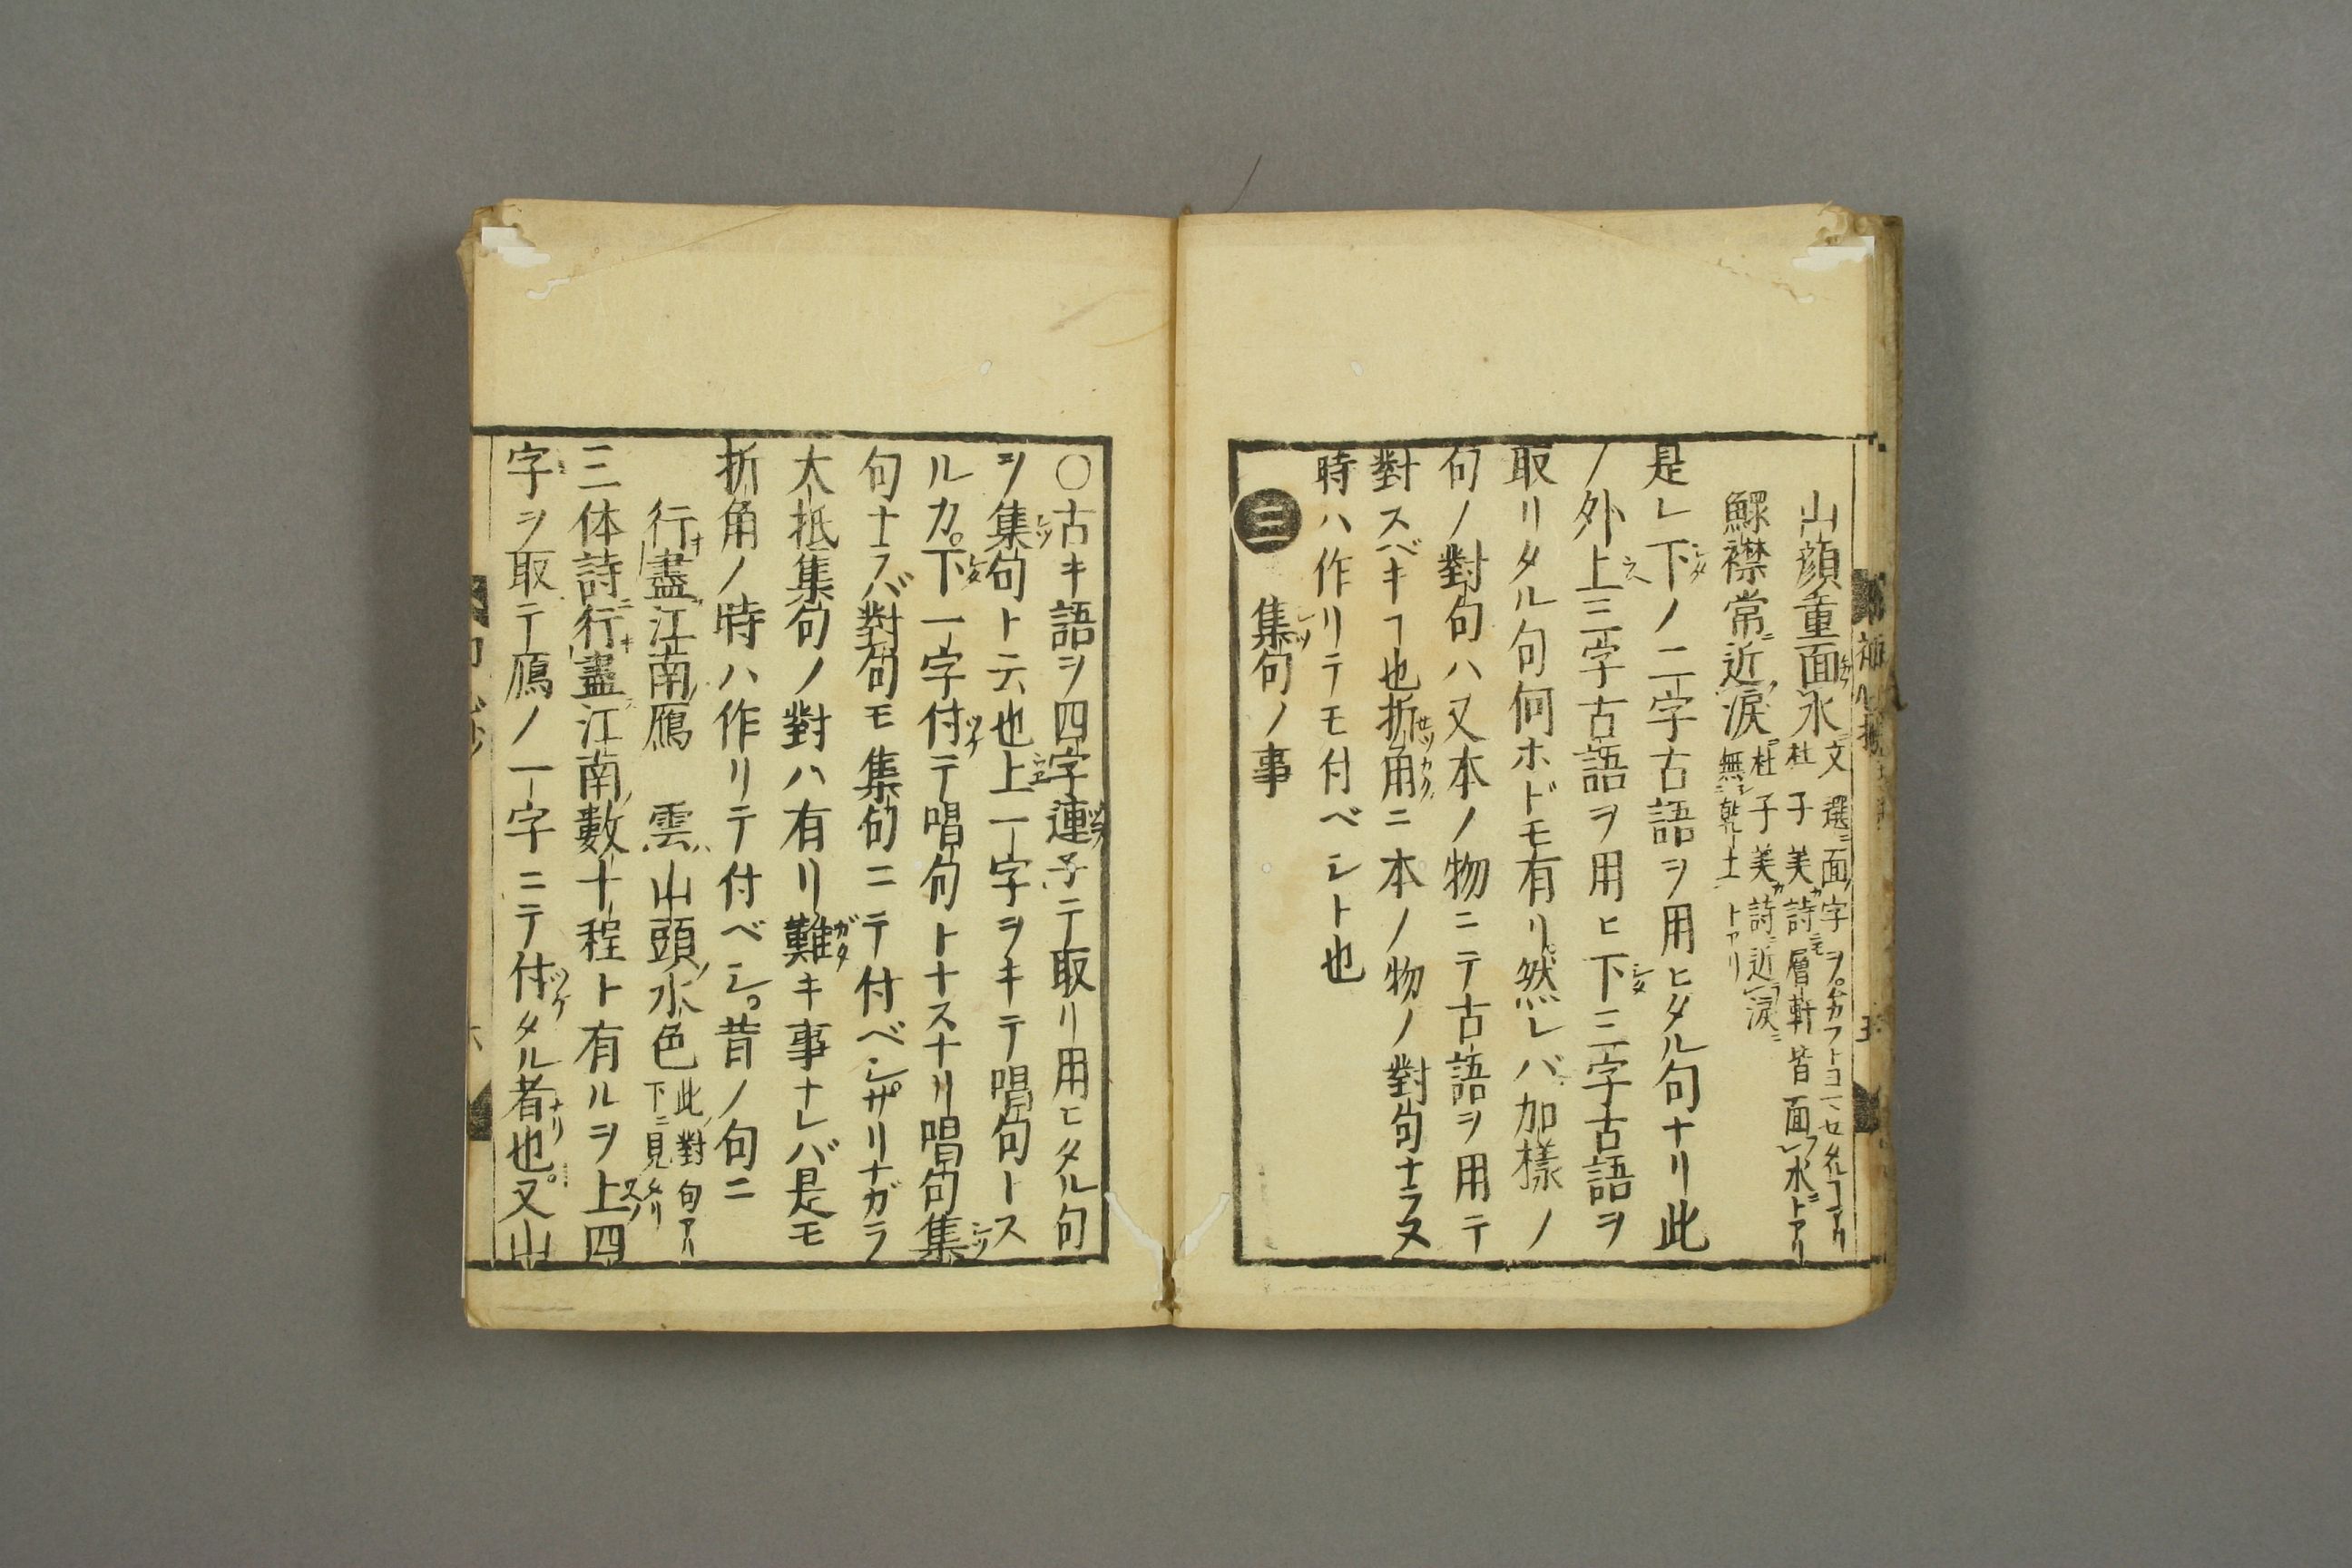 山顔重面水 文選ニ面字ヲムカフトヨマセタルヿアリ
杜子美カ詩ニモ層軒皆面水ニトアリ
鰥襟常近涙 杜子美カ詩ニ近涙ニ
無乾土トアリ
是レ下ノ二字古語ヲ用ヒタル句ナリ此
ノ外上三字古語ヲ用ヒ下三字古語ヲ
取リタル句何ホドモ有リ然レバ加樣ノ
句ノ對句ハ又本ノ物ニテ古語ヲ用テ
對スベキヿ也折角ニ本ノ物ノ對句ナラヌ
時ハ作リテモ付ベシト也
三 集句ノ事
〇古キ語ヲ四字連子テ取リ用ヒタル句
ヲ集句ト云也上一字ヲキテ唱句トス
ルカ下一字付テ唱句トナスナリ唱句集
句ナラバ對句モ集句ニテ付ベシサリナガラ
大抵集句ノ對ハ有リ難キ事ナレバ是モ
折角ノ時ハ作リテ付ベシ昔ノ句ニ
行盡江南鴈 雲山頭水色 此對句アハ
下ニ見タリ
三体詩行盡江南數十程ト有ルヲ上四
字ヲ取テ鴈ノ一字ニテ付タル者也又山